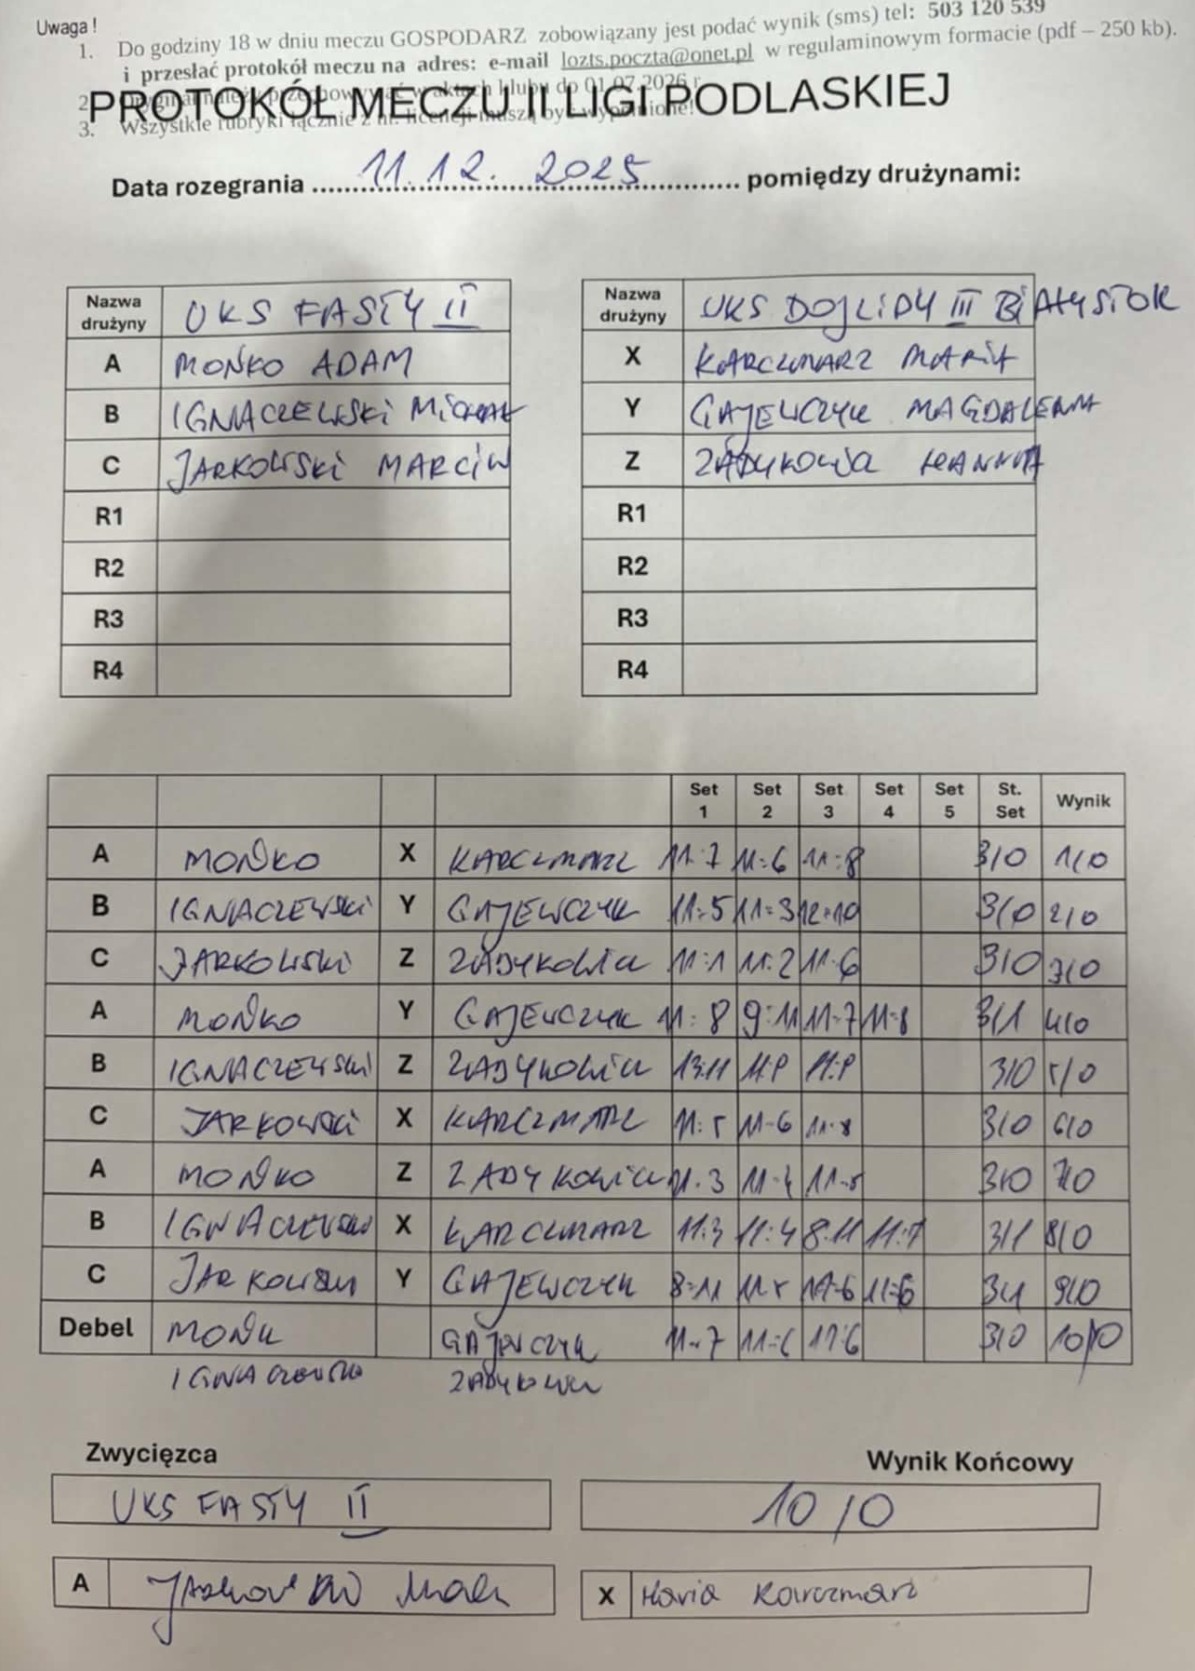 Uwaga !
1. Do godziny 18 w dniu meczu GOSPODARZ zobowiązany jest podać wynik (sms) tel: 503 120 539
i przesłać protokół meczu na adres: e-mail lozts.poczta@onet.pl w regulaminowym formacie (pdf – 250 kb).
2. klubu do 01.07.2026 r.
PROTOKÓŁ MECZU II LIGI PODLASKIEJ
3. Wszystkie rubryki łącznie z nr. licencji muszą być wypełnione!
Data rozegrania 11.12. 2025 pomiędzy drużynami:
Nazwa drużyny UKS FASTY II
A MOŃKO ADAM
B IGNACZEWSKI MICHAŁ
C JARKOWSKI MARCIN
R1
R2
R3
R4
Nazwa drużyny UKS DOJLIDY III BIAŁYSTOK
X KARCZMARZ MARIA
Y GAJEWCZYK MAGDALENA
Z ZADYKOWICZ HANNA
R1
R2
R3
R4
Set 1 Set 2 Set 3 Set 4 Set 5 St. Set Wynik
A MOŃKO X KARCZMARZ 11:7 11:6 11:8 3/0 1/0
B IGNACZEWSKI Y GAJEWCZYK 11:5 11:3 12:10 3/0 2/0
C JARKOWSKI Z 11:1 11:2 11:6 3/0 3/0
A MOŃKO Y GAJEWCZYK 11:8 9:11 11:7 11:8 3/1 4/0
B IGNACZEWSKI Z 13:11 3/0 5/0
C JARKOWSKI X KARCZMARZ 11:5 11:6 11:8 3/0 6/0
A MOŃKO Z 11:3 11:4 11:5 3/0 7/0
B IGNACZEWSKI X KARCZMARZ 11:3 11:4 8:11 11:7 3/1 8/0
C JARKOWSKI Y GAJEWCZYK 8:11 11:5 11:6 11:6 3/1 9/0
Debel MOŃK GAJEWCZYK 11:7 11:6 11:6 3/0 10/0
IGNACZEWSKI
Zwycięzca
Wynik Końcowy
UKS FASTY II
10/0
A
X Maria Karczmarz